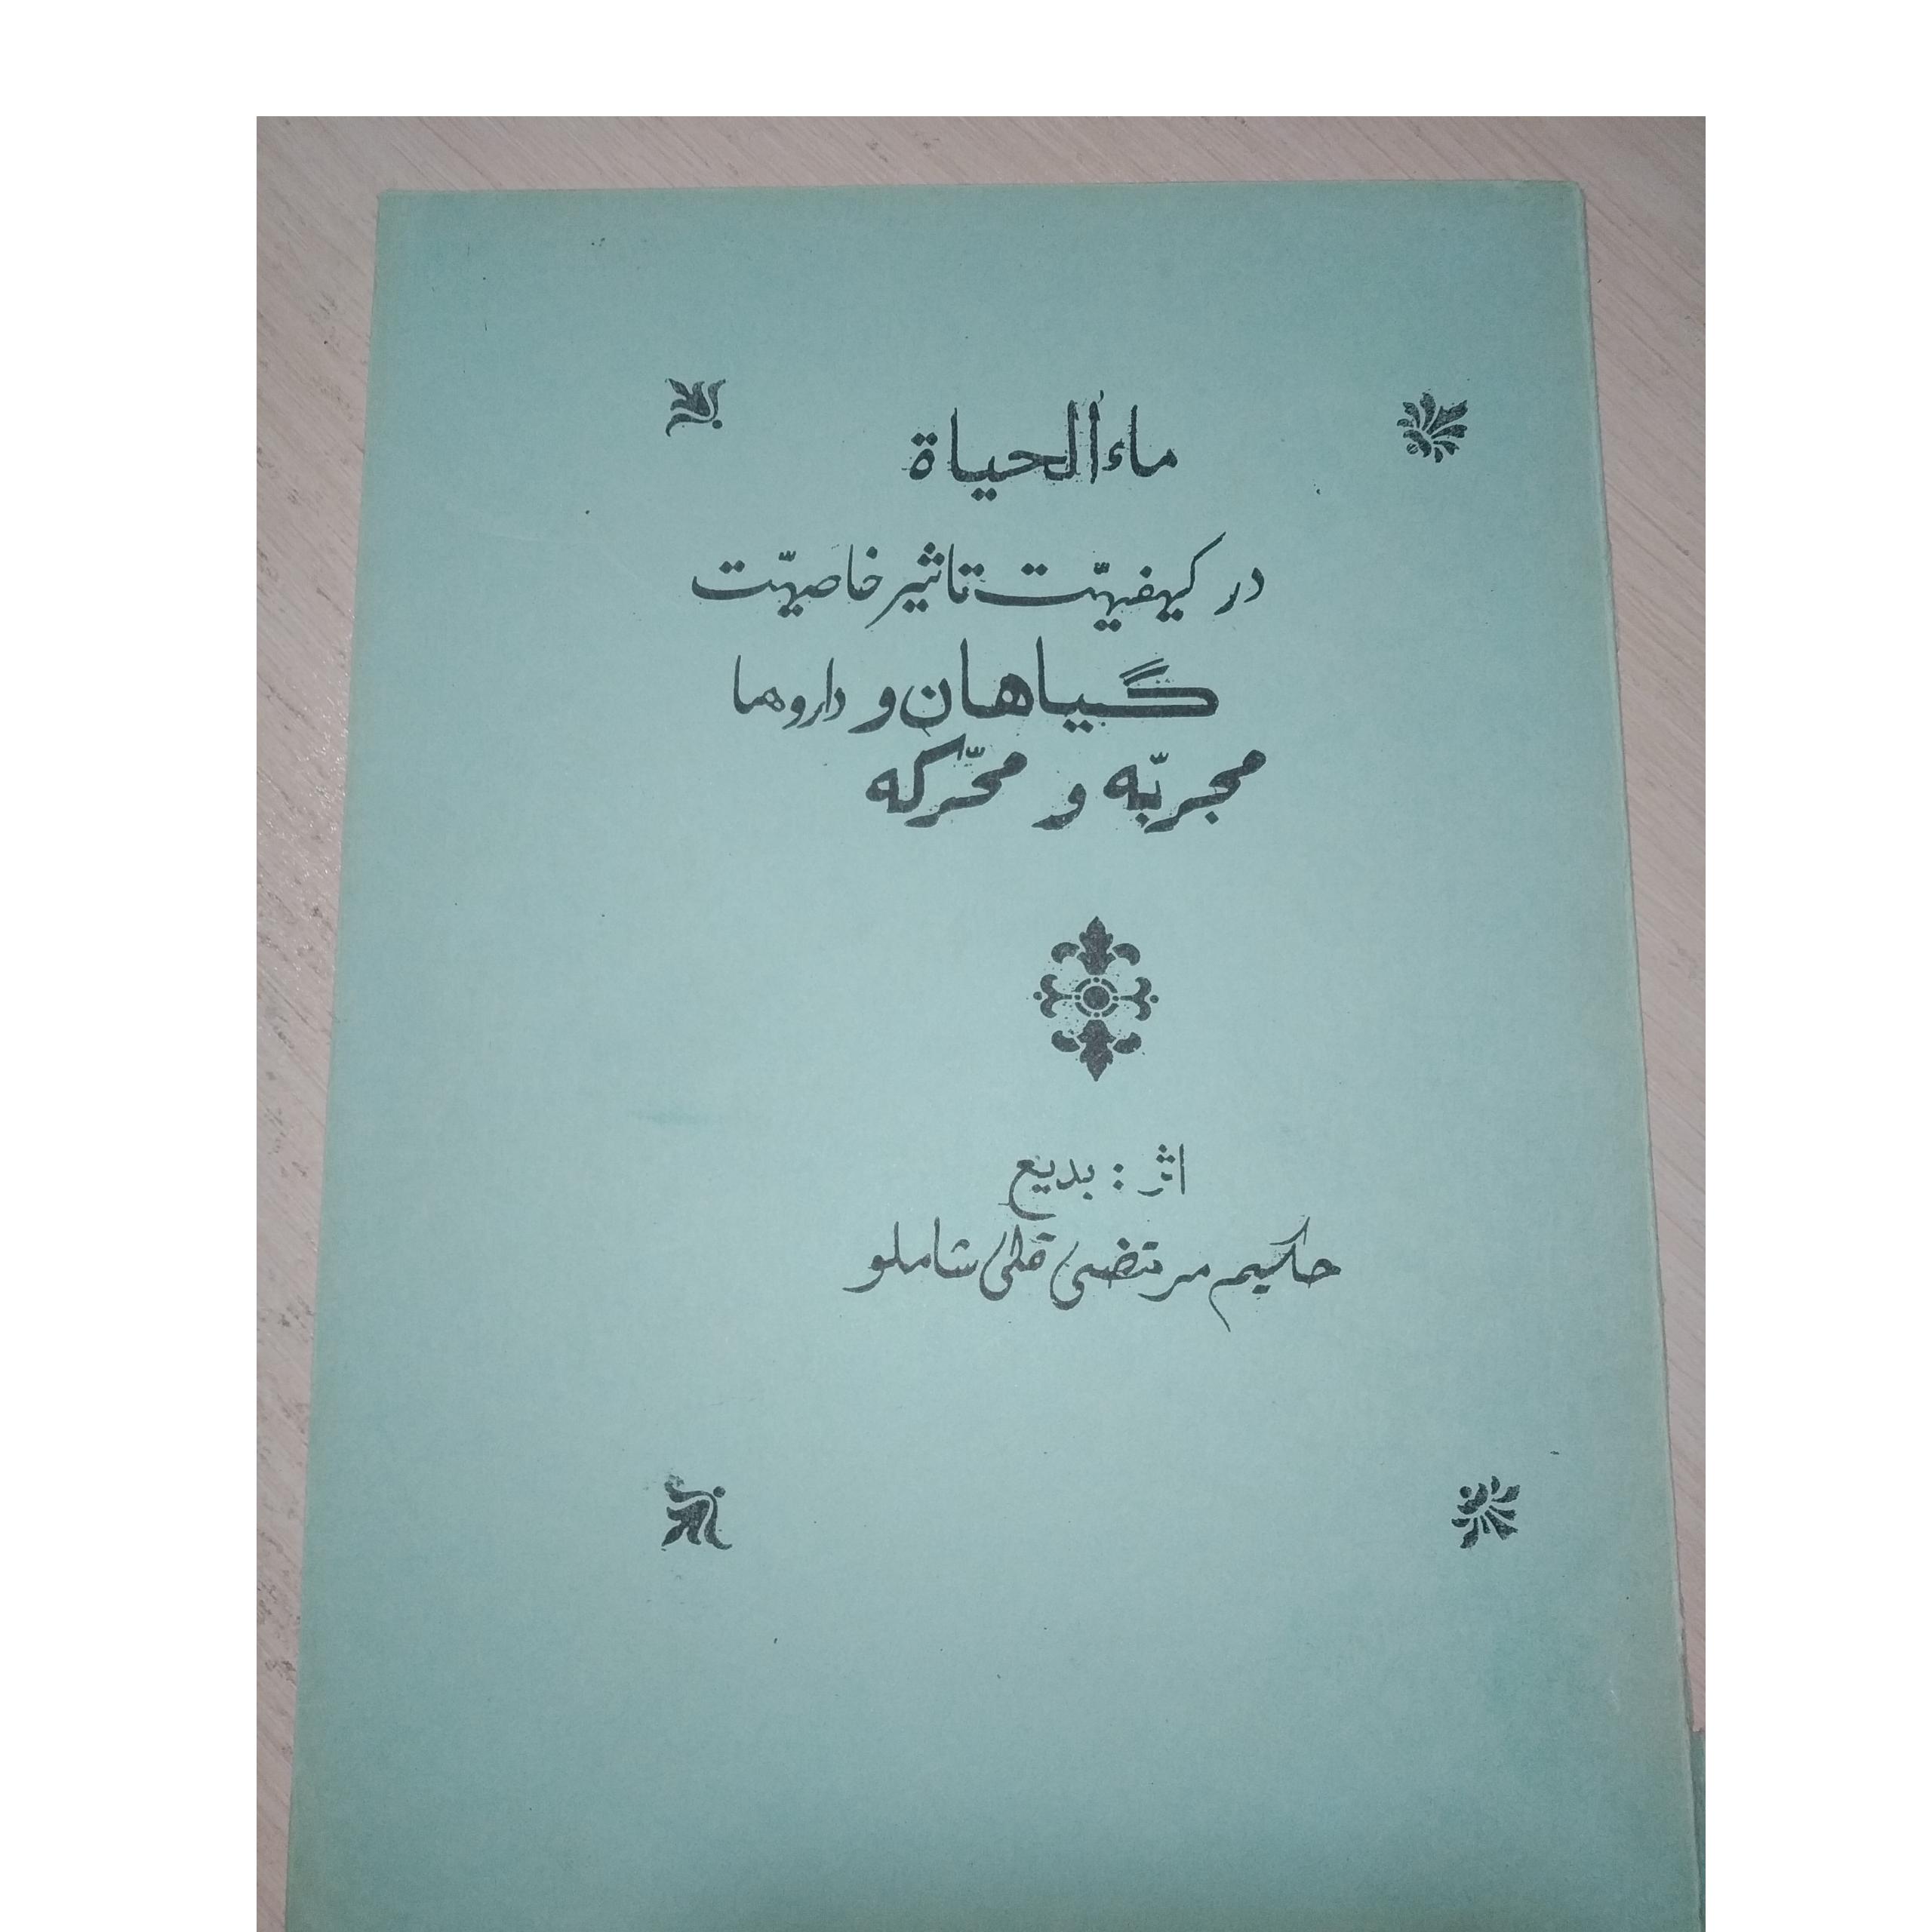 ماءالحیاة
در کیفیّت تاثیر خاصیّت
گیاهان و داروها
مجربّه و محرّکه
اثر : بدیع
حکیم مرتضی قلی شاملو